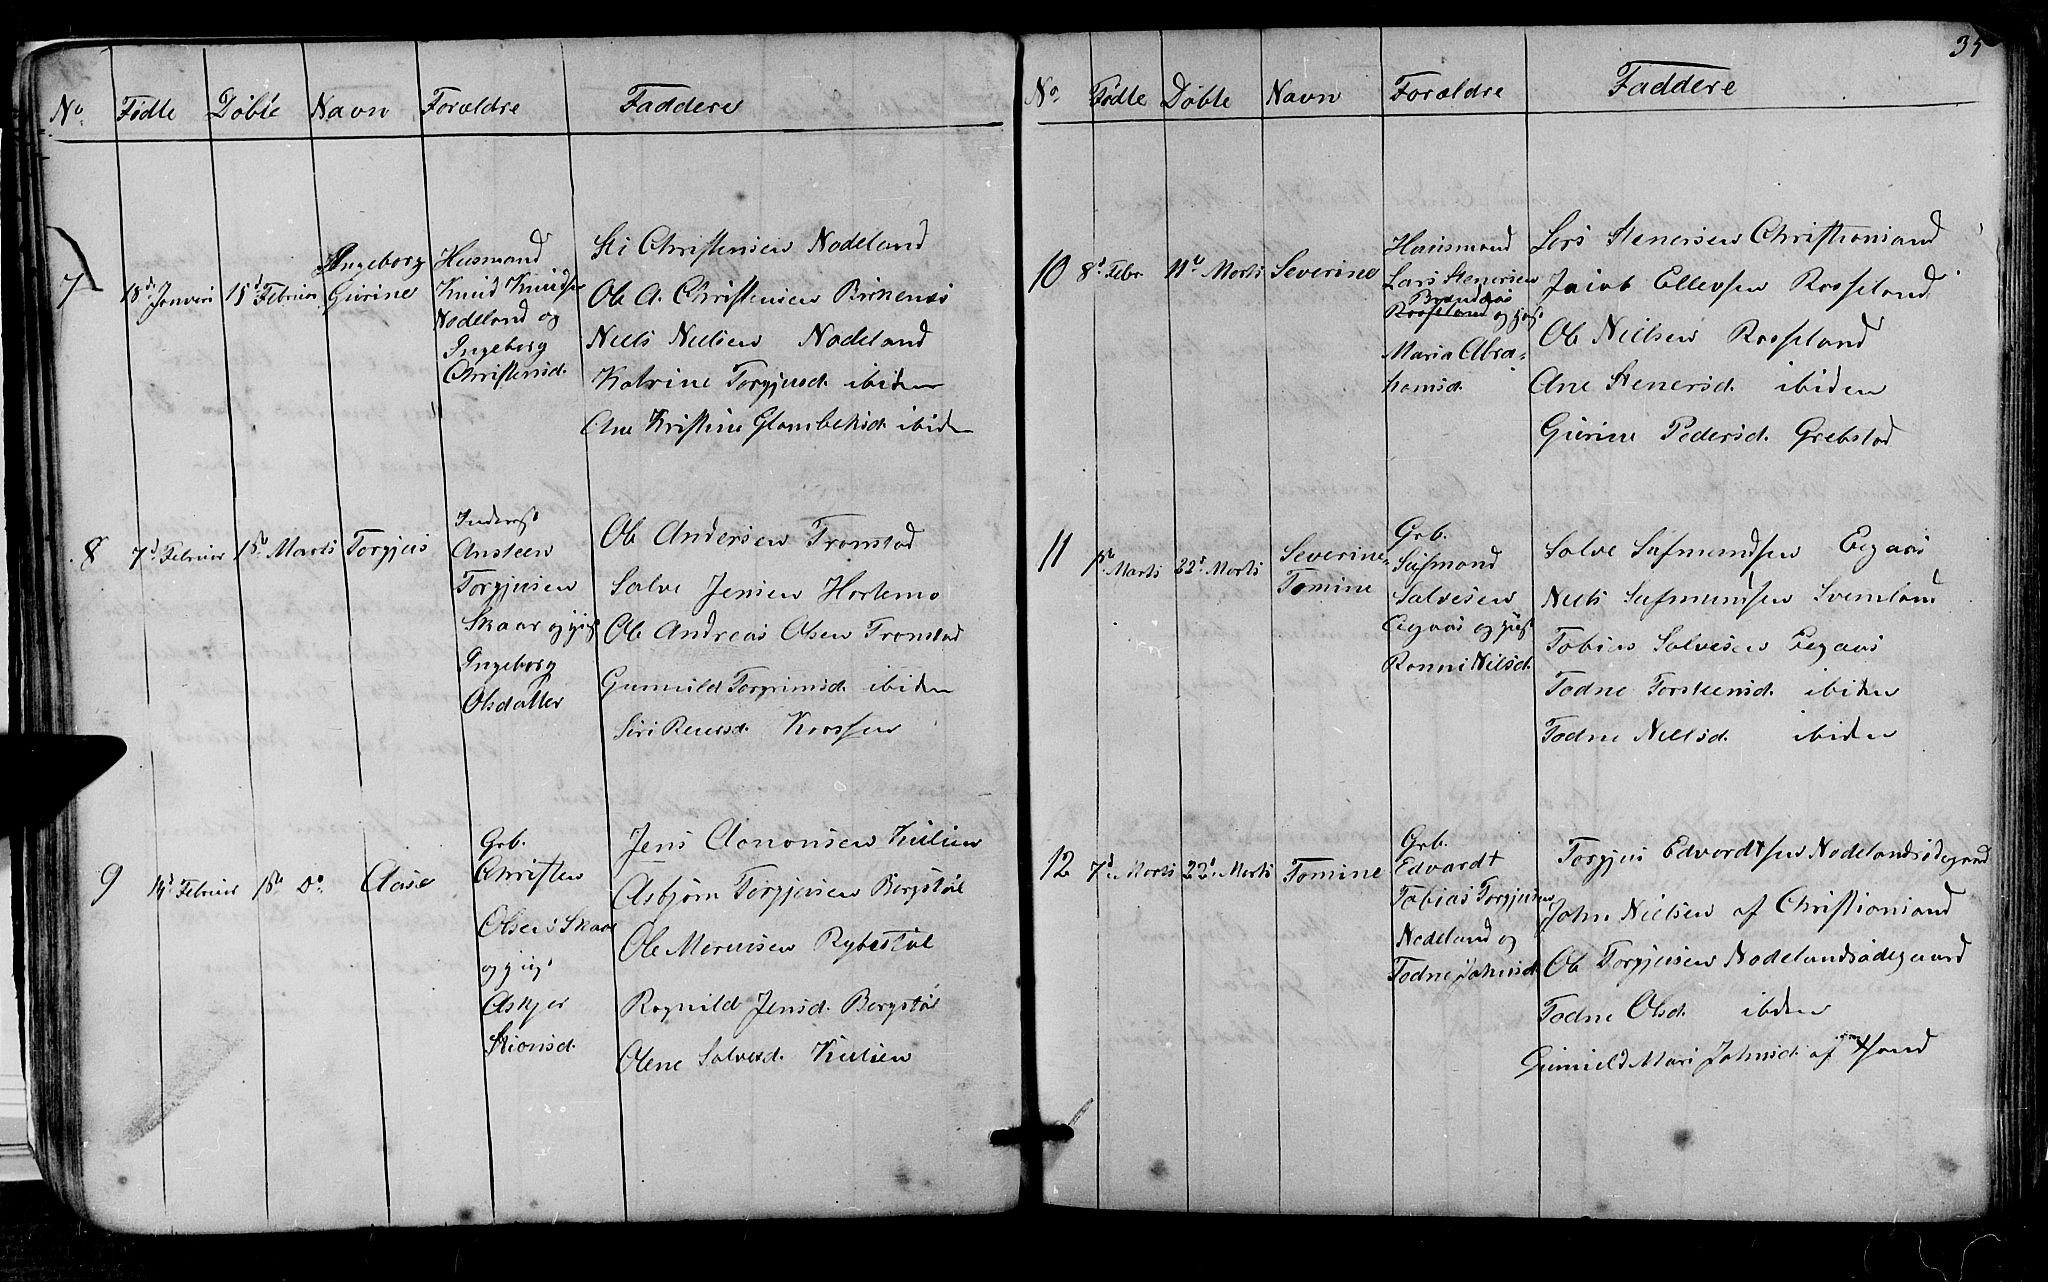 No. Fødte Døbte Navn Forældre Faddere
7 18d. Janveri 15d. Februar Ingeborg Gurine
Husmand
Knud Knudsen
Nodeland og
Ingeborg
Christensd.
Christensen Nodeland
Ole A. Christensen Birkenæs
Niels Nielsen Nodeland
Katrine Torgjusd. ibiden
Ane Kristine Glambeksd. ibiden
8 7d. Februar 15de Marts Torgjus
Inderst
Ansteen
Torgjusen
Skaar og gift
Ingeborg
Olsdatter
Ole Andersen Tronstad
Salve Jensen Hortemo
Ole Andreas Olsen Tronstad
Gunnild Torgrimsd. ibiden
Siri Reiersd. Krossen
9 14d. Februar 15de Do. Aase
Grb.
Christen
Olsen Skaar
og gift
Askjer
Stiansd.
Jens Aanonsen Kulien
Asbjørn Torgjusen Bergstøl
Ole Rybestøl
Ragnild Jensd. Bergstøl
Olene Salvesd. Kulien
35
No. Fødte Døbte Navn Forældre Faddere
10 8d. Febr. 11te Marts Severine
Huusmand
Lars Stenersen
Brandaas
Rosseland og gift
Maria Abra-
hamsd.
Lars Stenersen Christiansand
Jacob Ellevsen Rosseland
Ole Nielsen Rosseland
Ane Stenersd. ibiden
Gurine Pedersd. Grebstad
11 1ste Marts 22d. Marts Severine Tomine
Grb.
Sufmond
Salvesen
Eegaas og gift
Ronni Nilsd.
Salve Sufmundsen Eegaas
Niels Sufmundsen Svenland
Tobias Salvesen Eegaas
Todne Torsteensd. ibiden
Todne Nielsd. ibiden
12 7d. Marts 22d. Marts Tomine
Grb.
Edvardt
Tobias Torgjusen
Nodeland og
Todne Johnsd.
Torgjus Edvardtsen Nodelandsødegaard
John Nielsen af Christiansand
Ole Torgjusen Nodelandsødegaard
Todne Olsd. ibiden
Gunnild Mari Johnsd. af